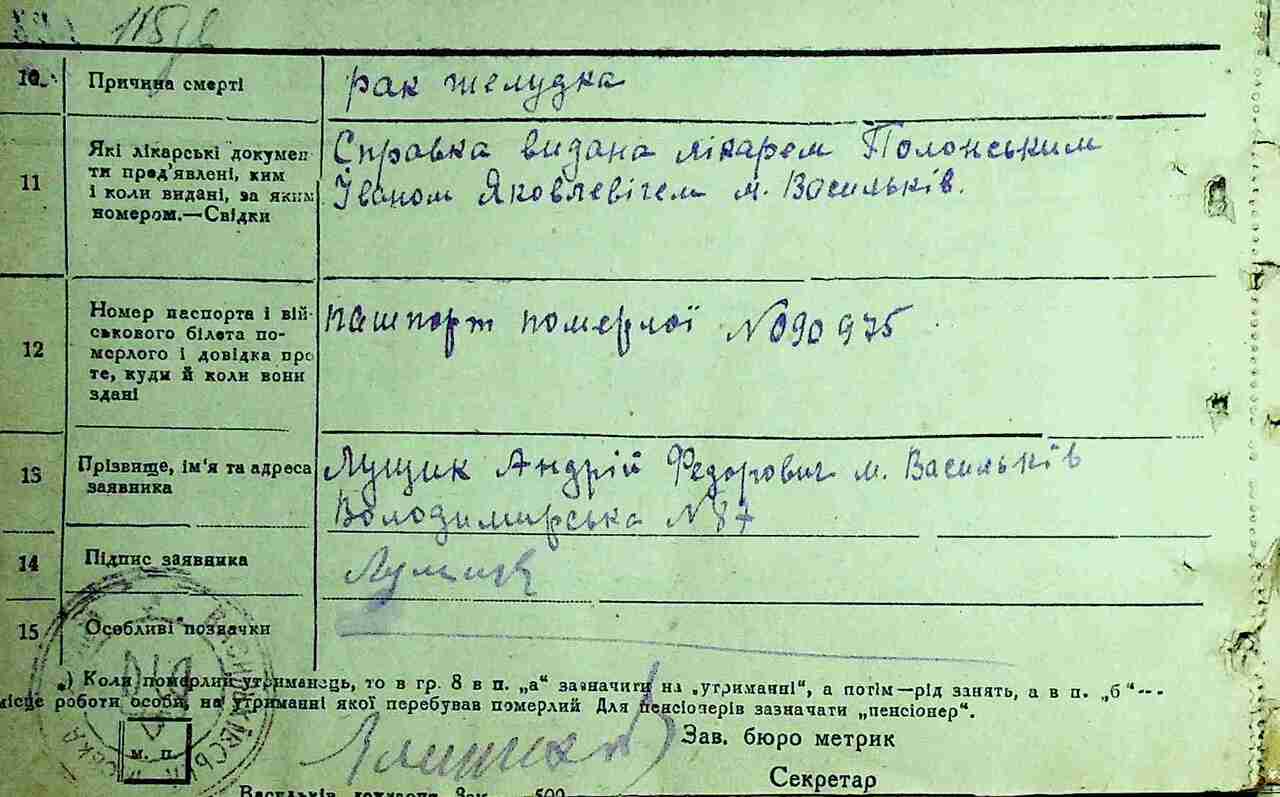 115
10. Причина смерті рак желудка
11 Які лікарські докумен-
ти пред'явлені, ким
і коли видані, за яким
номером.—Свідки
Справка видана лікарем Полонським
Іваном Яковлевічем м. Васильків.
12 Номер паспорта і вій-
ськового білета по-
мерлого і довідка про
те, куди й коли вони
здані
пашпорт померлої N 090975
13 Прізвище, ім'я та адреса
заявника
Лущик Андрій Федорович м. Васильків
Володимирська N 87
14 Підпис заявника Лущик
15 Особливі позначки
*) Коли померлий утриманець, то в гр. 8 в п. „а“ зазначити на „утриманні“, а потім—рід занять, а в п. „б“---
місце роботи особи, на утриманні якої перебував померлий Для пенсіонерів зазначати „пенсіонер“.
Зав. бюро метрик
м. п.
Секретар
Васильків 500